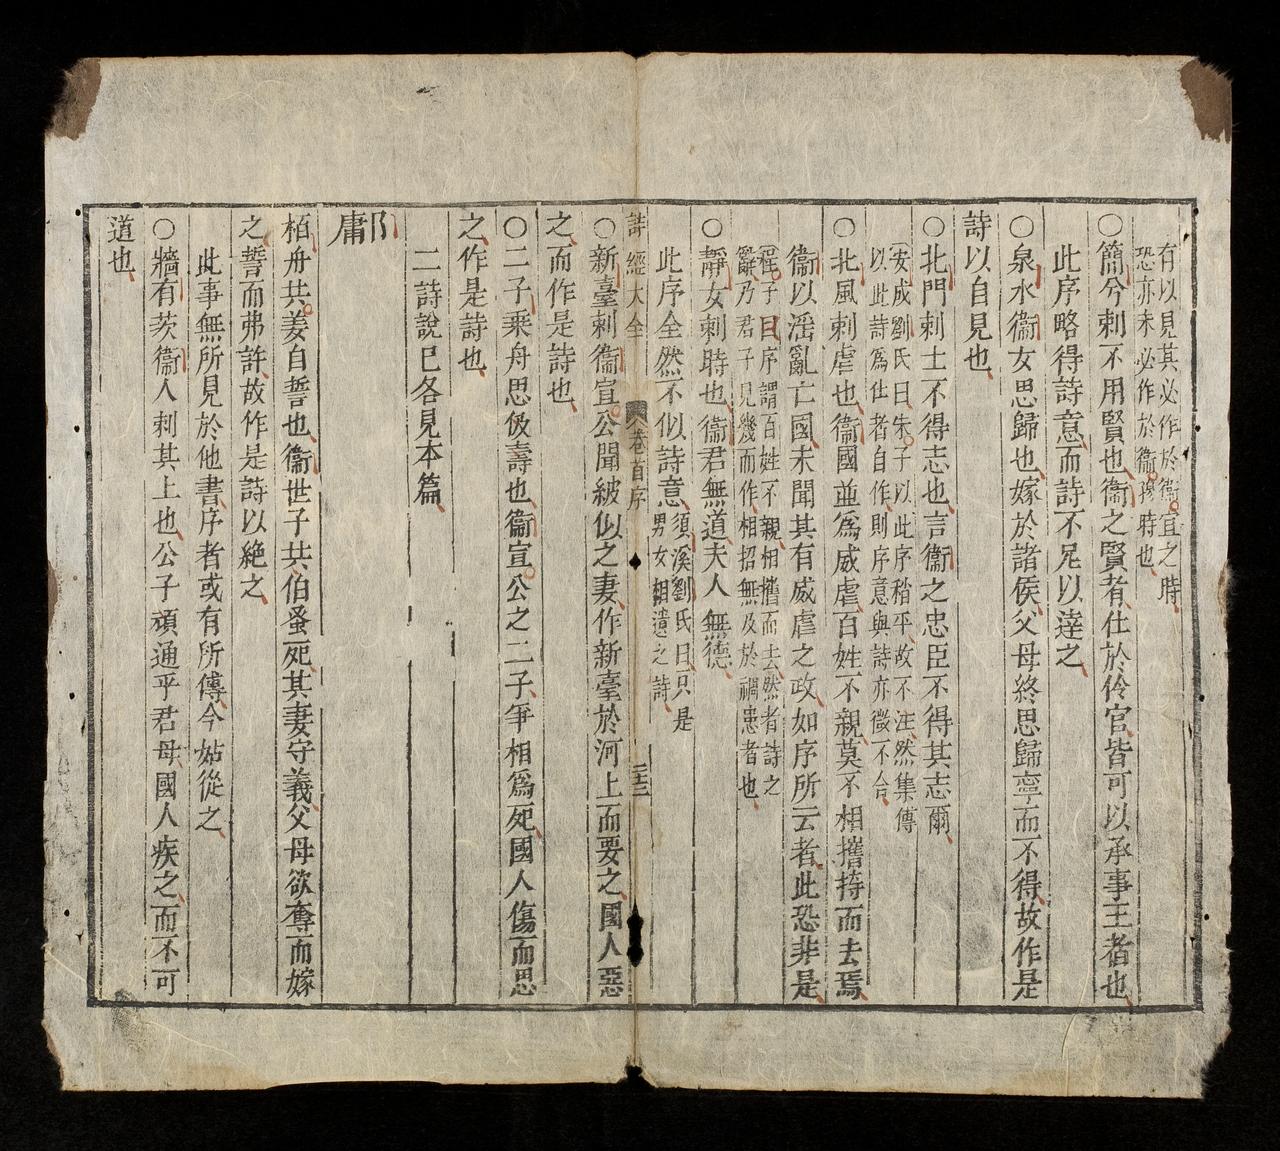 有以見其必作於衞宣之時
恐亦未必作於衞穆時也
○簡兮刺不用賢也衞之賢者仕於伶官皆可以承事王者也
此序略得詩意而詩不足以逹之
○泉水衞女思歸也嫁於諸侯父母終思歸寧而不得故作是
詩以自見也
○北門刺士不得志也言衞之忠臣不得其志爾
安成劉氏曰朱子以此序稍平故不注然集傳
以此詩爲仕者自作則序意與詩亦微不合
○北風刺虐也衞國並爲威虐百姓不親莫不相攜持而去焉
衞以淫亂亡國未聞其有威虐之政如序所云者此恐非是
程子曰序謂百姓不親相攜而去然者詩之
辭乃君子見幾而作相招無及於禍患者也
○靜女刺時也衞君無道夫人無德
此序全然不似詩意須溪劉氏曰只是
男女相遺之詩
詩經大全 卷首序 二十三
○新臺刺衞宣公聞紱似之妻作新臺於河上而要之國人惡
之而作是詩也
○二子乘舟思伋壽也衞宣公之二子爭相爲死國人傷而思
之作是詩也
二詩說已各見本篇
鄘
栢舟共姜自誓也衞世子共伯蚤死其妻守義父母欲奪而嫁
之誓而弗許故作是詩以絶之
此事無所見於他書序者或有所傳今姑從之
○牆有茨衞人刺其上也公子頑通乎君母國人疾之而不可
道也